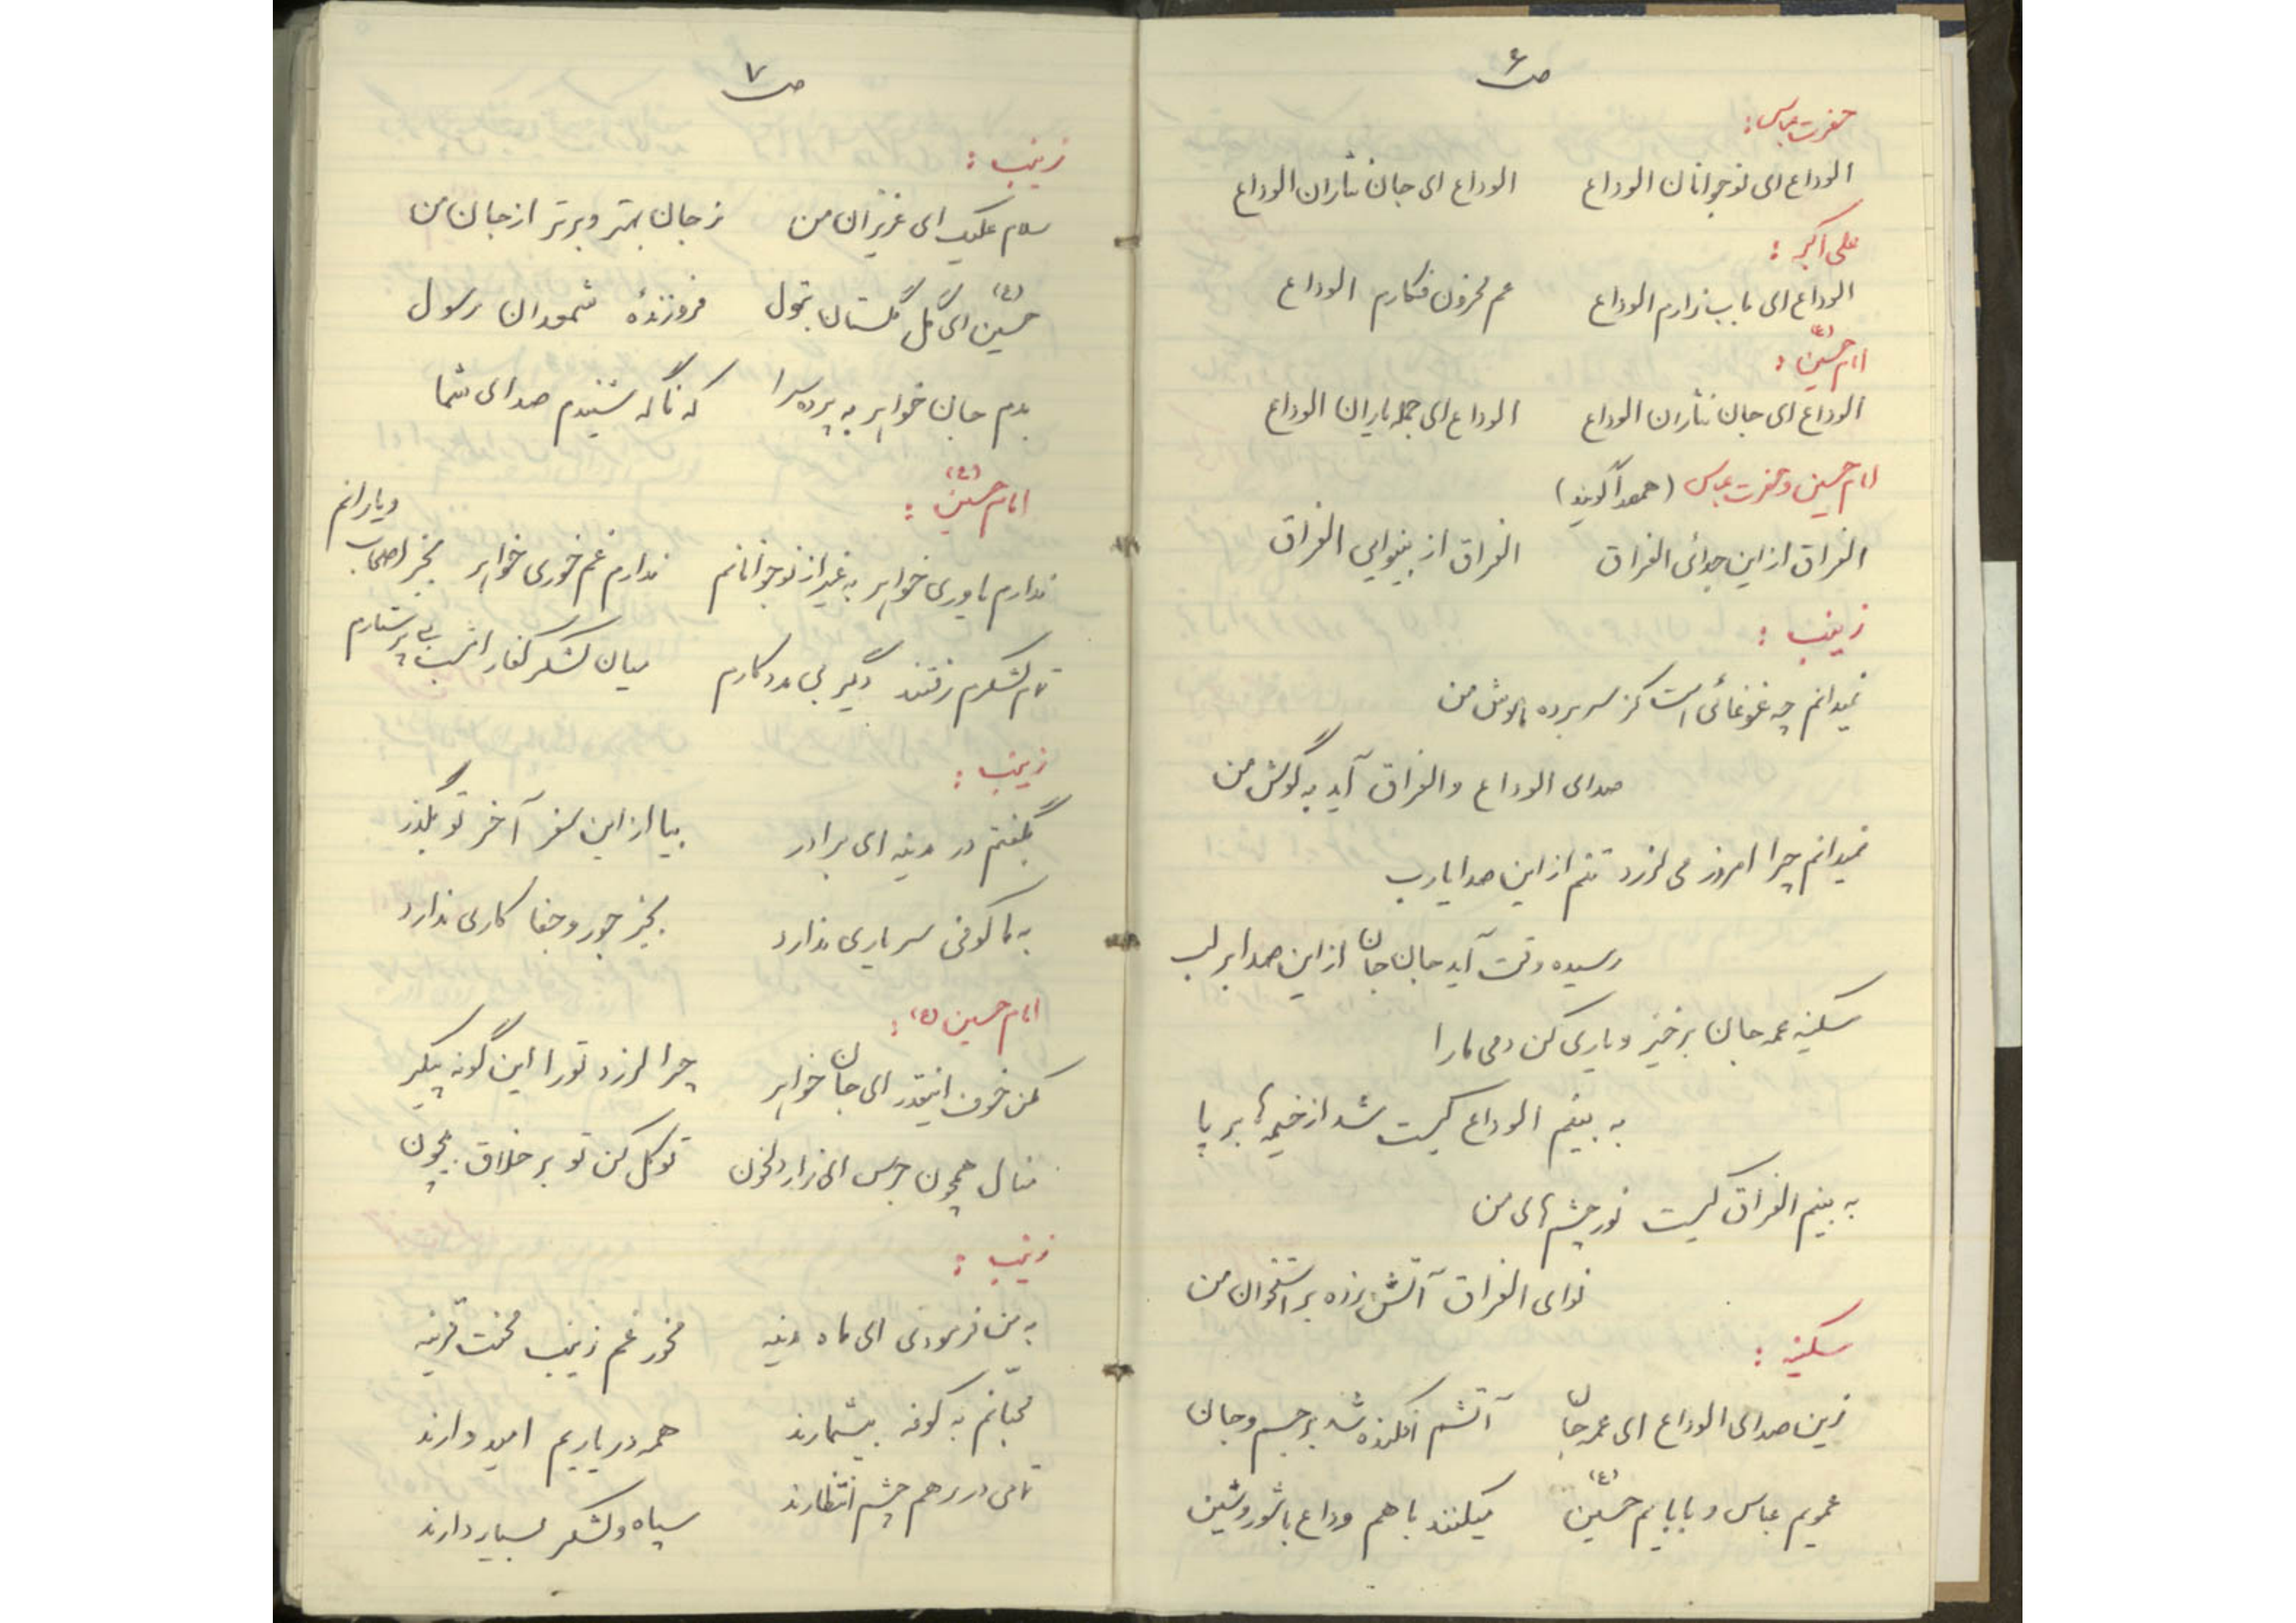 ص ۶
حضرت عباس:
الوداع ای نوجوانان الوداع الوداع ای جان نثاران الوداع
علی اکبر:
الوداع ای باب زارم الوداع عم محزون فکارم الوداع
امام حسین (ع):
الوداع ای جان نثاران الوداع الوداع ای جمله یاران الوداع
امام حسین و حضرت عباس (همصدا گویند)
الفراق از این جدائی الفراق الفراق از بینوایی الفراق
زینب:
نمیدانم چه غوغائی است کز سر برده هوش من
صدای الوداع والفراق آید به گوش من
نمیدانم چرا امروز می لرزد تنم از این صدا یارب
رسیده وقت آید جان جانان از این صدا بر لب
سکینه عمه جان برخیز و یاری کن دمی ما را
به بینم الوداع کیست شد از خیمه ها بر پا
به بینم الفراق کیست نور چشم های من
نوای الفراق آتش بزده بر استخوان من
سکینه:
زین صدای الوداع ای عمه جان آتشم افکنده شد بر جسم و جان
عمویم عباس و بابایم حسین (ع) میکنند با هم وداع با شور و شین
ص ۷
زینب:
سلام علیک ای عزیزان من ز جان بهتر و برتر از جان من
حسین (ع) ای گل گلستان بتول فروزندهٔ شمعدان رسول
بدم جان خواهر به پرده سرا که ناگه شنیدم صدای شما
امام حسین (ع):
ندارم یاوری خواهر به غیر از نوجوانانم ندارم غم خوری خواهر بجز اصحاب و یارانم
تمام لشکرم رفتند دگیر بی مددکارم میان لشکر کفار امشب بی پرستارم
زینب:
بگفتم در مدینه ای برادر بیا از این سفر آخر تو بگذر
به ما کوفی سر یاری ندارد بجز جور و جفا کاری ندارد
امام حسین (ع):
مکن خوف اینقدر ای جان خواهر چرا لرزد تو را این گونه پیکر
منال همچون جرس ای زار دلخون توکل کن تو بر خلاق بیچون
زینب:
به من فرمودی ای ماه مدینه مخور غم زینب محنت قرینه
محبانم به کوفه بیشمارند همه در یاریم امید دارند
تمامی در رهم چشم انتظارند سپاه و لشکر بسیار دارند